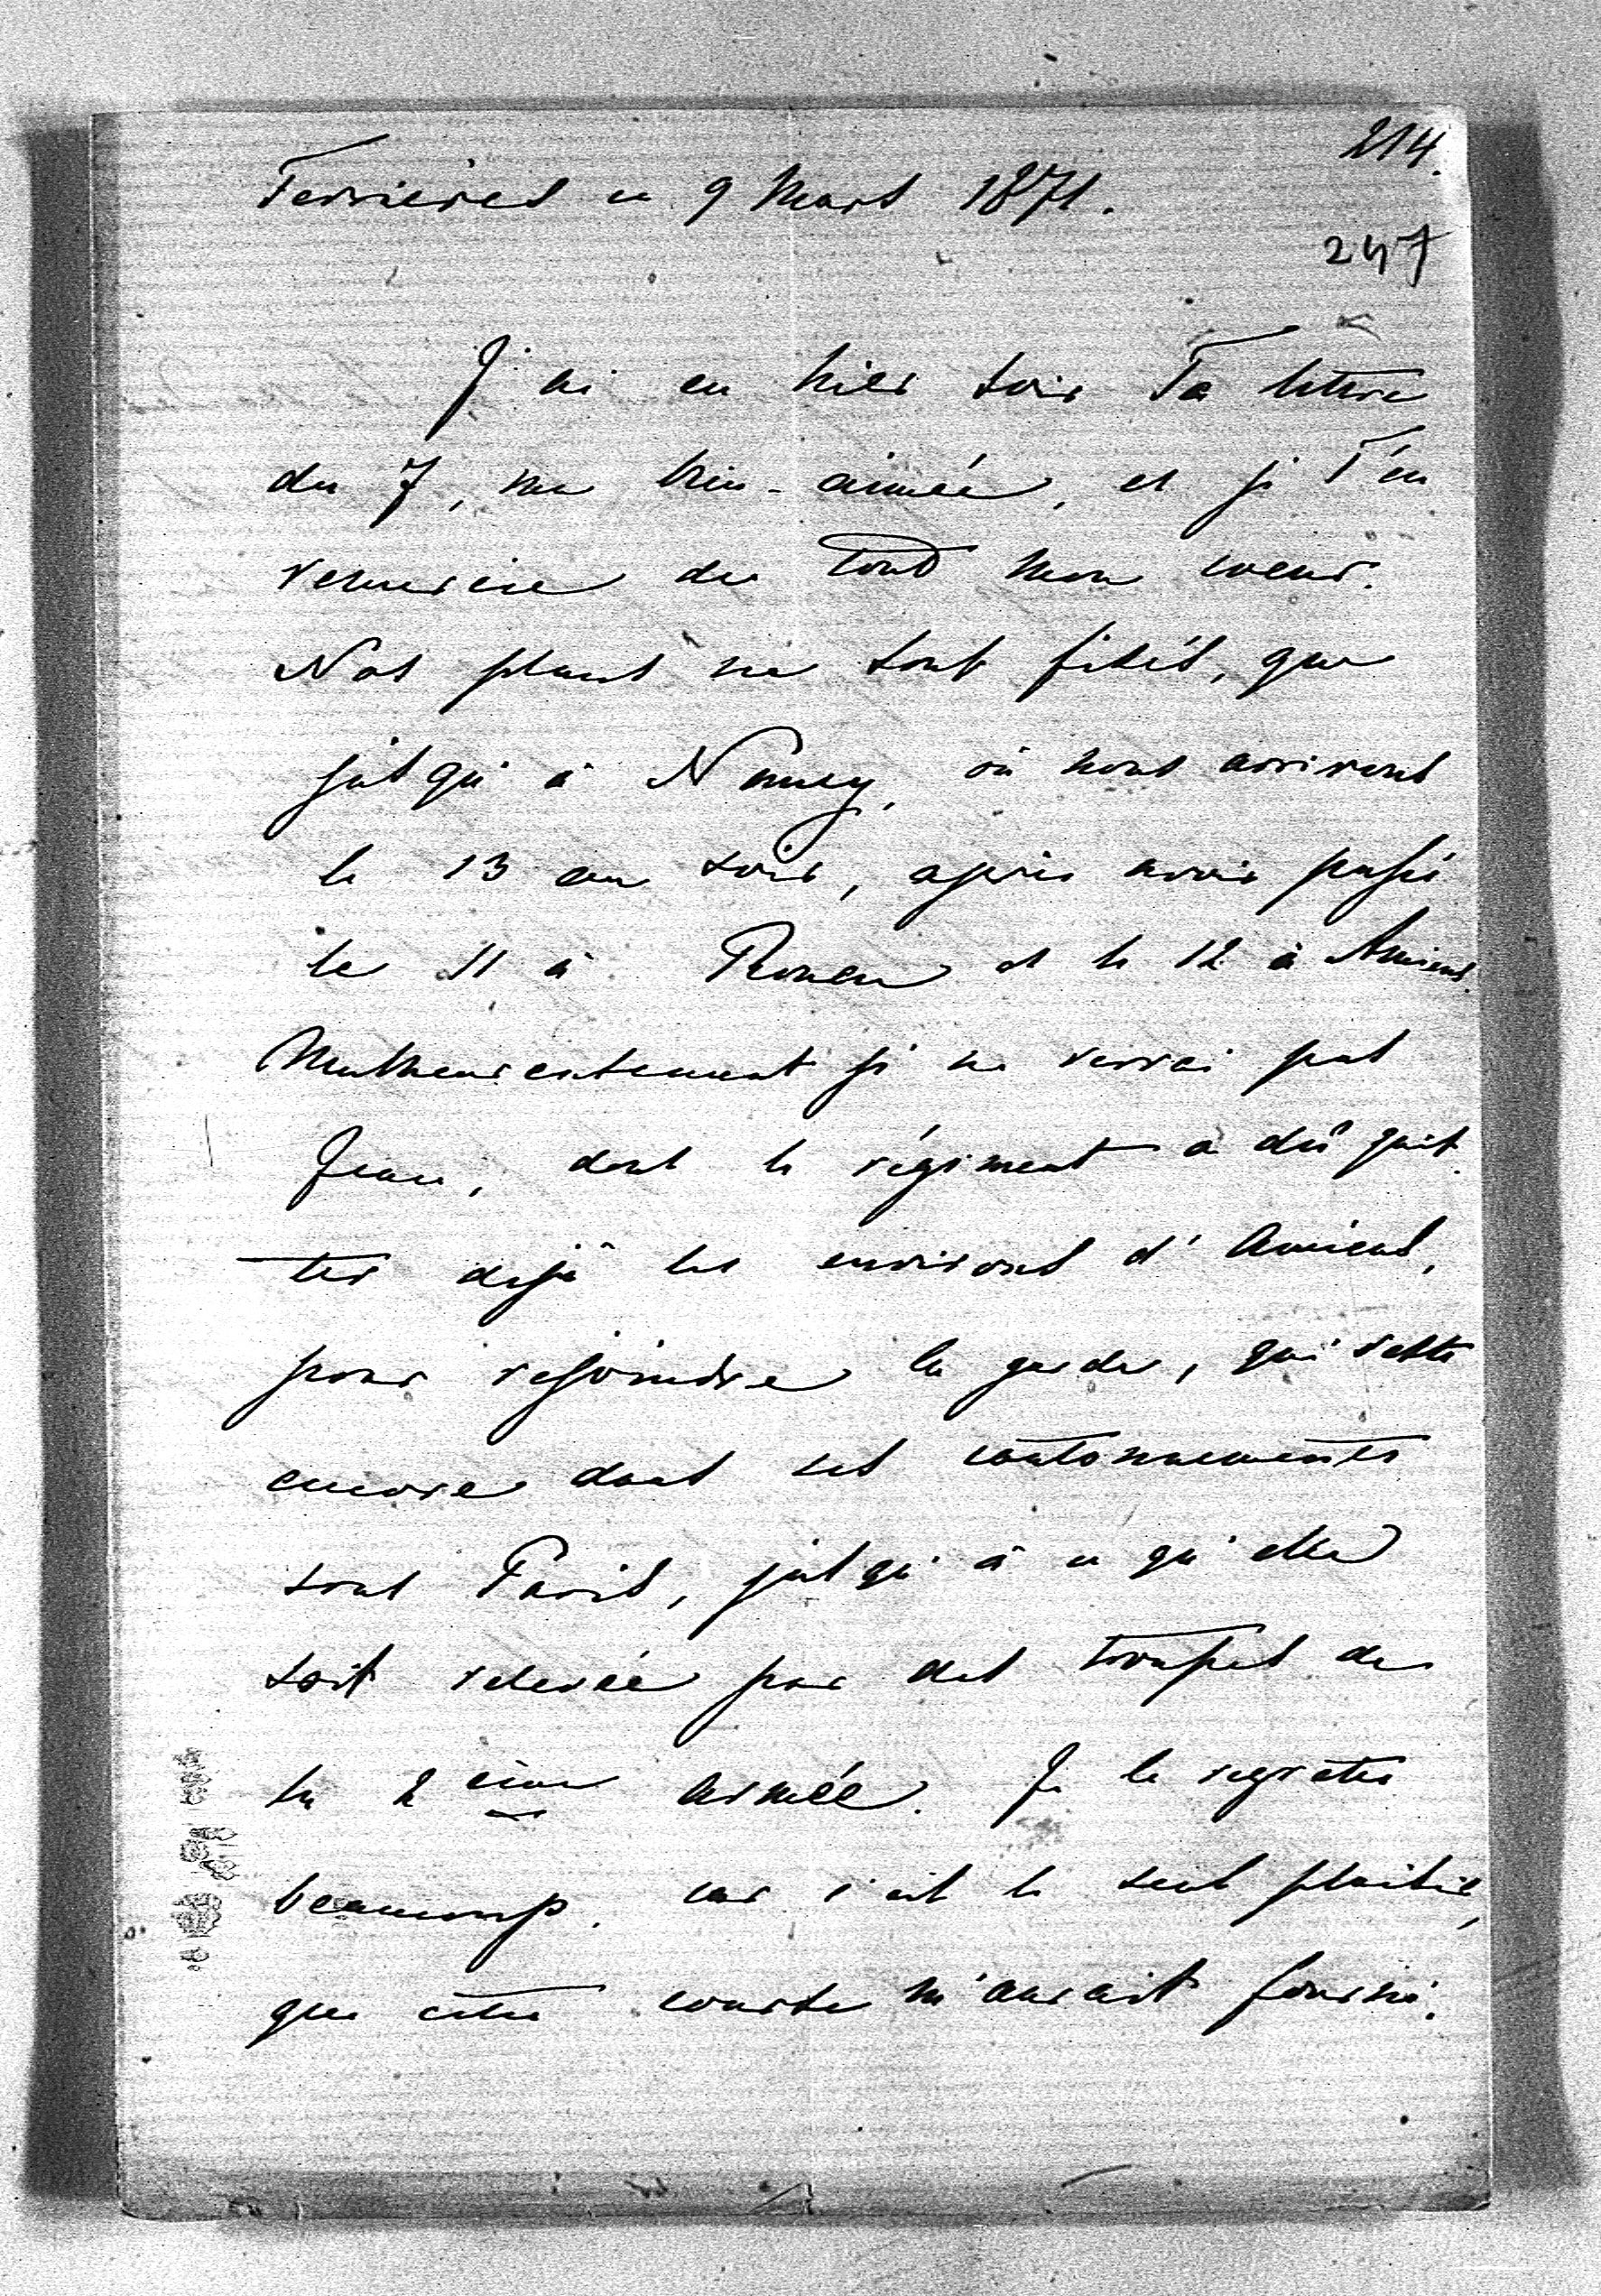 214.
Ferrières ce 9 Mars 1871.
247
J'ai eu hier soir Ta lettre
du 7, ma bien-aimée, et je T'en
remercie de tout mon coeur.
Nos plans ne sont fixés, que
jusqu'à Nancy, où nous arrivons
le 13 au soir, après avoir passé
le 11 à Rouen et le 12 à Amiens.
Malheureusement je ne verrai pas
Jean, dont le régiment a dû quit-
ter dejà les environs d'Amiens,
pour rejoindre la garde, qui reste
encore dans ses cantonnements
sous Paris, jusqu'à ce qu'elle
soit relevée par des troupes de
la 2ème armée. Je le regrette
beaucoup, car c'est le seul plaisir,
que cette course m'aurait fourni.